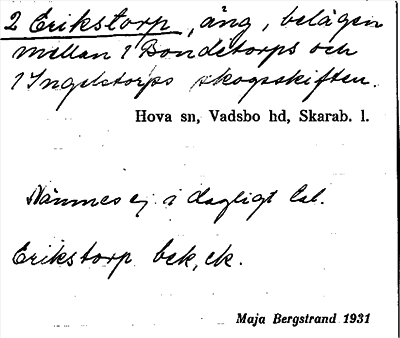 2 Erikstorp, äng, belägen
mellan 1 Bondetorps och
1 Ingelstorps skogsskiften.
Hova sn, Vadsbo hd, Skarab. l.
Nämnes ej i dagligt tal.
Erikstorp bek, ek.
Maja Bergstrand 1931